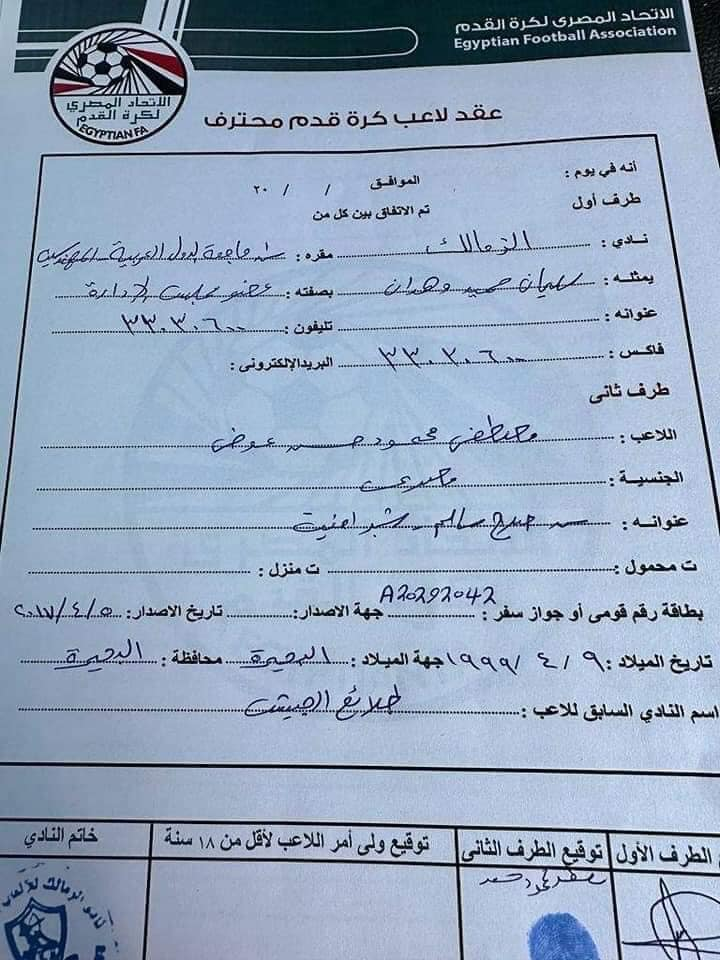 الاتحاد المصرى لكرة القدم
Egyptian Football Association
الاتحاد المصرى
لكرة القدم
EGYPTIAN FA
عقد لاعب كرة قدم محترف
أنه في يوم : الموافق / / ٢٠
طرف أول تم الاتفاق بين كل من
نادي : الزمالك مقره : ش جامعة الدول العربية - المهندسين
يمثله : سليمان حميد وهدان بصفته : عضو مجلس الإدارة
عنوانه : تليفون : ٣٣٠٣٠٦٠٠
فاكس : ٣٣٠٣٠٦٠٠ البريد الإلكترونى :
طرف ثانى
اللاعب : مصطفى محمود حسن عوض
الجنسية : مصرى
عنوانه : ش صلاح سالم - شبراخيت
ت محمول : ت منزل :
بطاقة رقم قومى أو جواز سفر : A20292042 جهة الاصدار: تاريخ الاصدار: ٢٠١٧/٤/٥
تاريخ الميلاد : ٩ / ٤ / ١٩٩٩ جهة الميلاد : البحيرة محافظة : البحيرة
اسم النادي السابق للاعب : طلائع الجيش
الطرف الأول توقيع الطرف الثانى توقيع ولى أمر اللاعب لأقل من ١٨ سنة خاتم النادي
نادي الزمالك للألعاب